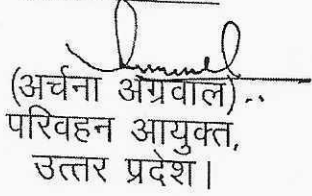 (अर्चना अग्रवाल)..
परिवहन आयुक्त,
उत्तर प्रदेश।